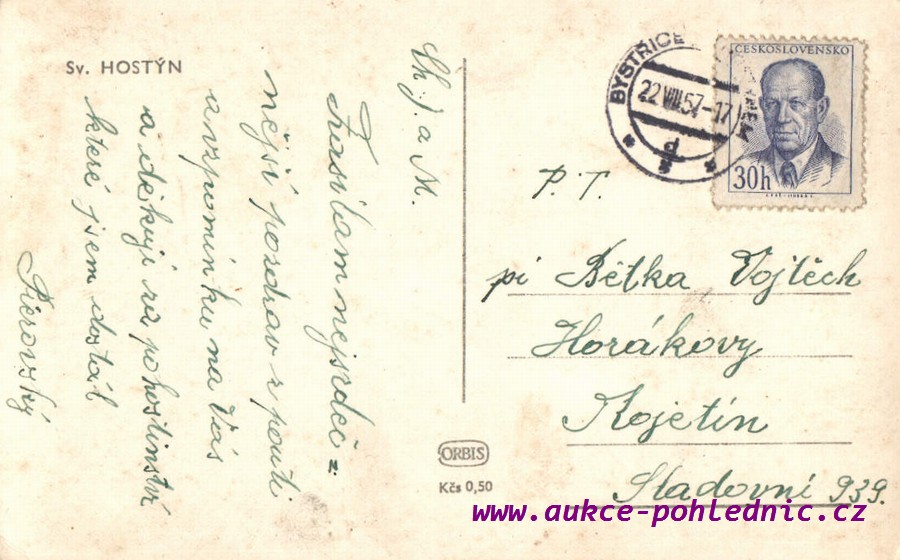 Sv. HOSTÝN
Ch. J. a M.
Zasílam nejsrdeč=
nější pozdrav z pouti
a vzpomínku na Vás
a děkuji za pohostinství
které jsem dostál
Pierovský
BYSTŘICE
22.VIII.57-17
ČESKOSLOVENSKO
30h
P. T.
pí Bětka Vojtěch
Horákovy
Kojetín
Sladovní 939.
ORBIS
Kčs 0,50
www.aukce-pohlednic.cz